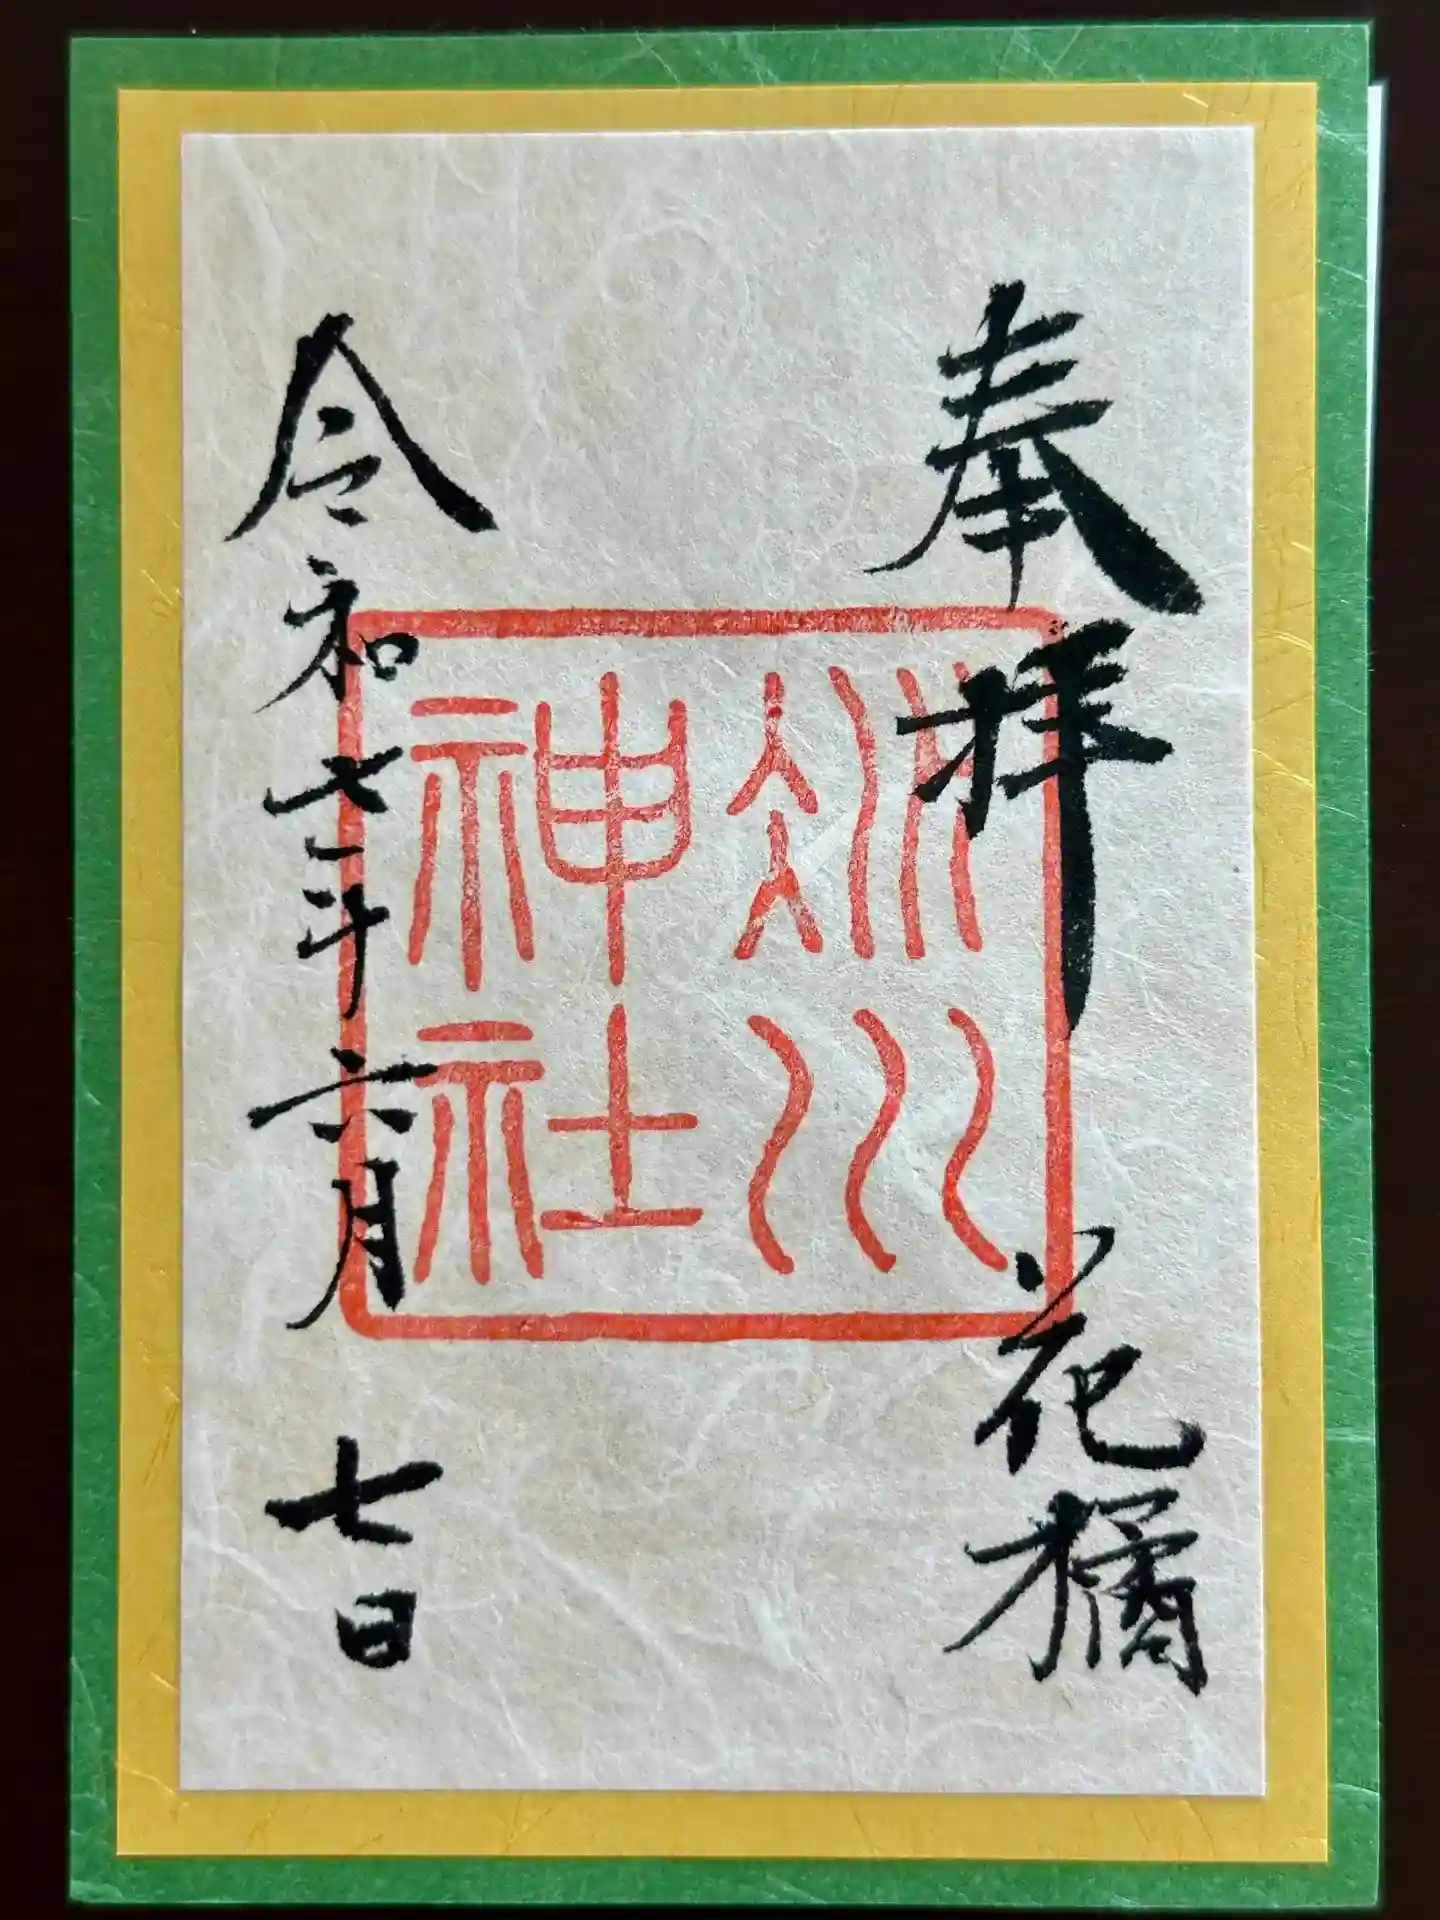 奉拝
花橘
冰川
神社
令和七年六月七日